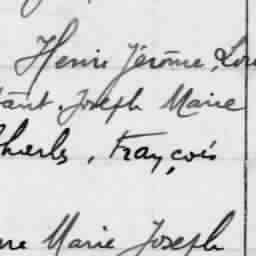 Henri Jérôme, Lou
tant Joseph Marie
Charles, François
ne Marie Joseph